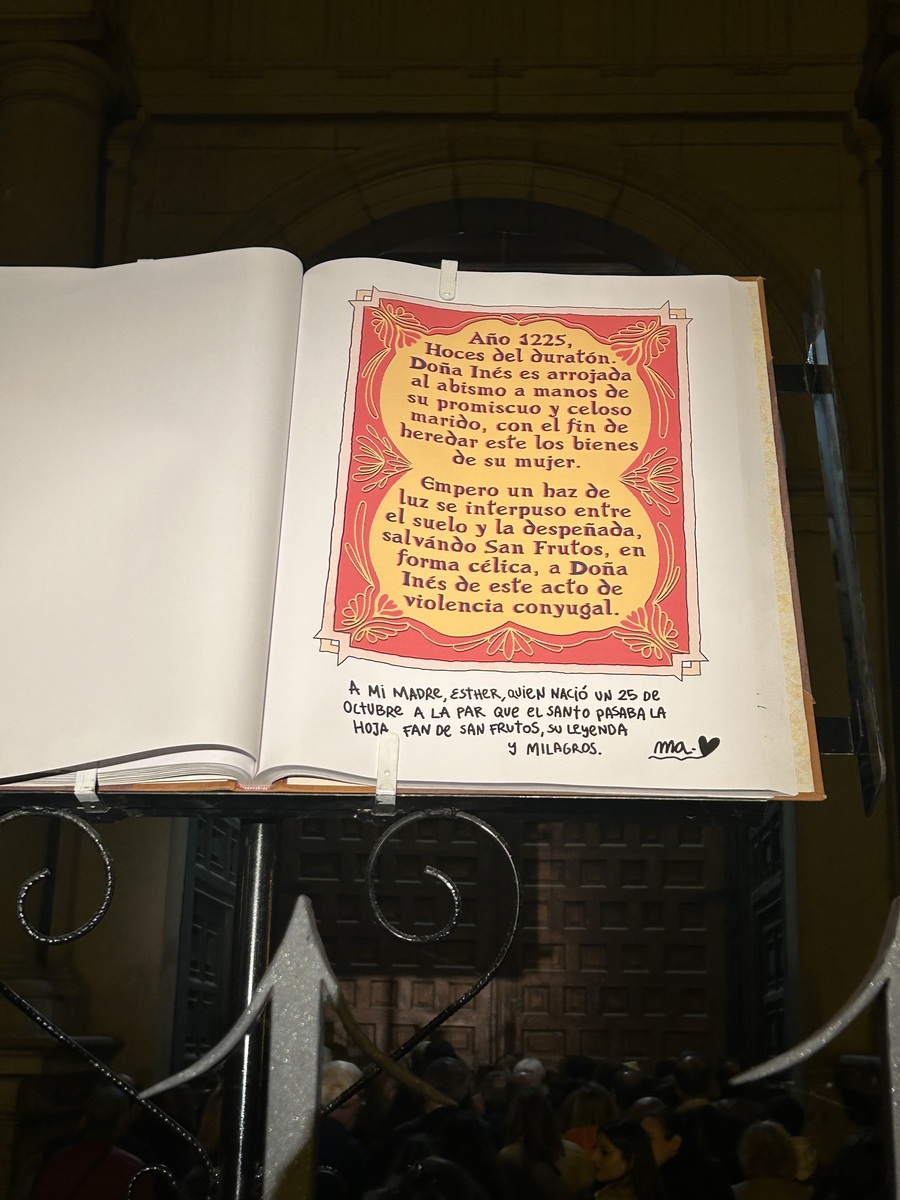 Año 1225,
Hoces del duratón.
Doña Inés es arrojada
al abismo a manos de
su promiscuo y celoso
marido, con el fin de
heredar este los bienes
de su mujer.
Empero un haz de
luz se interpuso entre
el suelo y la despeñada,
salvándo San Frutos, en
forma célica, a Doña
Inés de este acto de
violencia conyugal.
A MI MADRE, ESTHER, QUIEN NACIÓ UN 25 DE
OCTUBRE A LA PAR QUE EL SANTO PASABA LA
HOJA. FAN DE SAN FRUTOS, SU LEYENDA
Y MILAGROS.
ma.